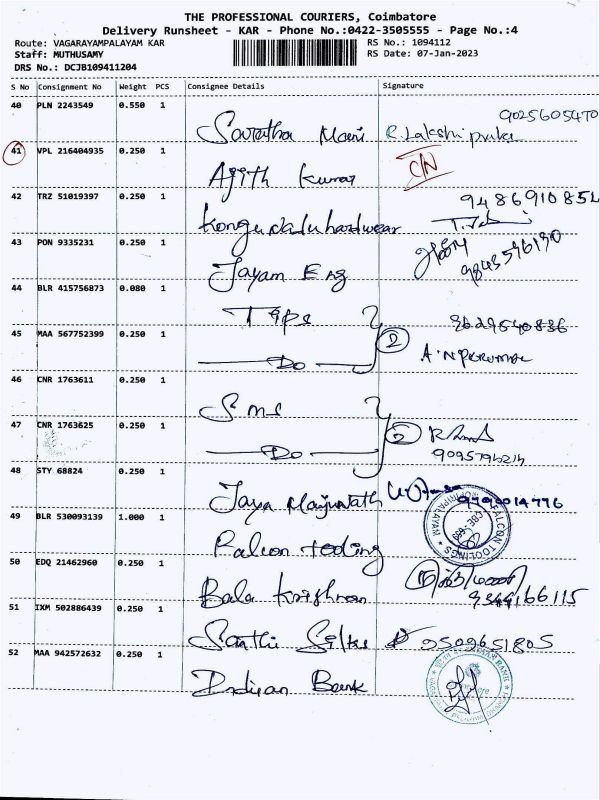 THE PROFESSIONAL COURIERS, Coimbatore
Delivery Runsheet - KAR - Phone No.:0422-3505555 - Page No.:4
Route: VAGARAYAMPALAYAM KAR
RS No.: 1094112
Staff: MUTHUSAMY
RS Date: 07-Jan-2023
DRS No.: DCJB109411204
S No Consignment No Weight PCS Consignee Details Signature
40 PLN 2243549 0.550 1
9025605470
Saratha Mani R. Lakshi
41 VPL 216404935 0.250 1
C/N
Ajith Kumar
42 TRZ 51019397 0.250 1
9486910852
hardwear
43 PON 9335231 0.250 1
9843596190
Jayam Eng
44 BLR 415756873 0.080 1
Tips
9629540836
45 MAA 567752399 0.250 1
2
Do
A.N PERUMAL
46 CNR 1763611 0.250 1
Sms
47 CNR 1763625 0.250 1
2
Do
48 STY 68824 0.250 1
Jaya Manjunath
9790014776
49 BLR 530093139 1.000 1
FALCON TOOLINGS
Falcon tooling
50 EDQ 21462960 0.250 1
Bala Krishnan
51 IXM 502886439 0.250 1
Santhi Silks 9509651805
52 MAA 942572632 0.250 1
Indian Bank